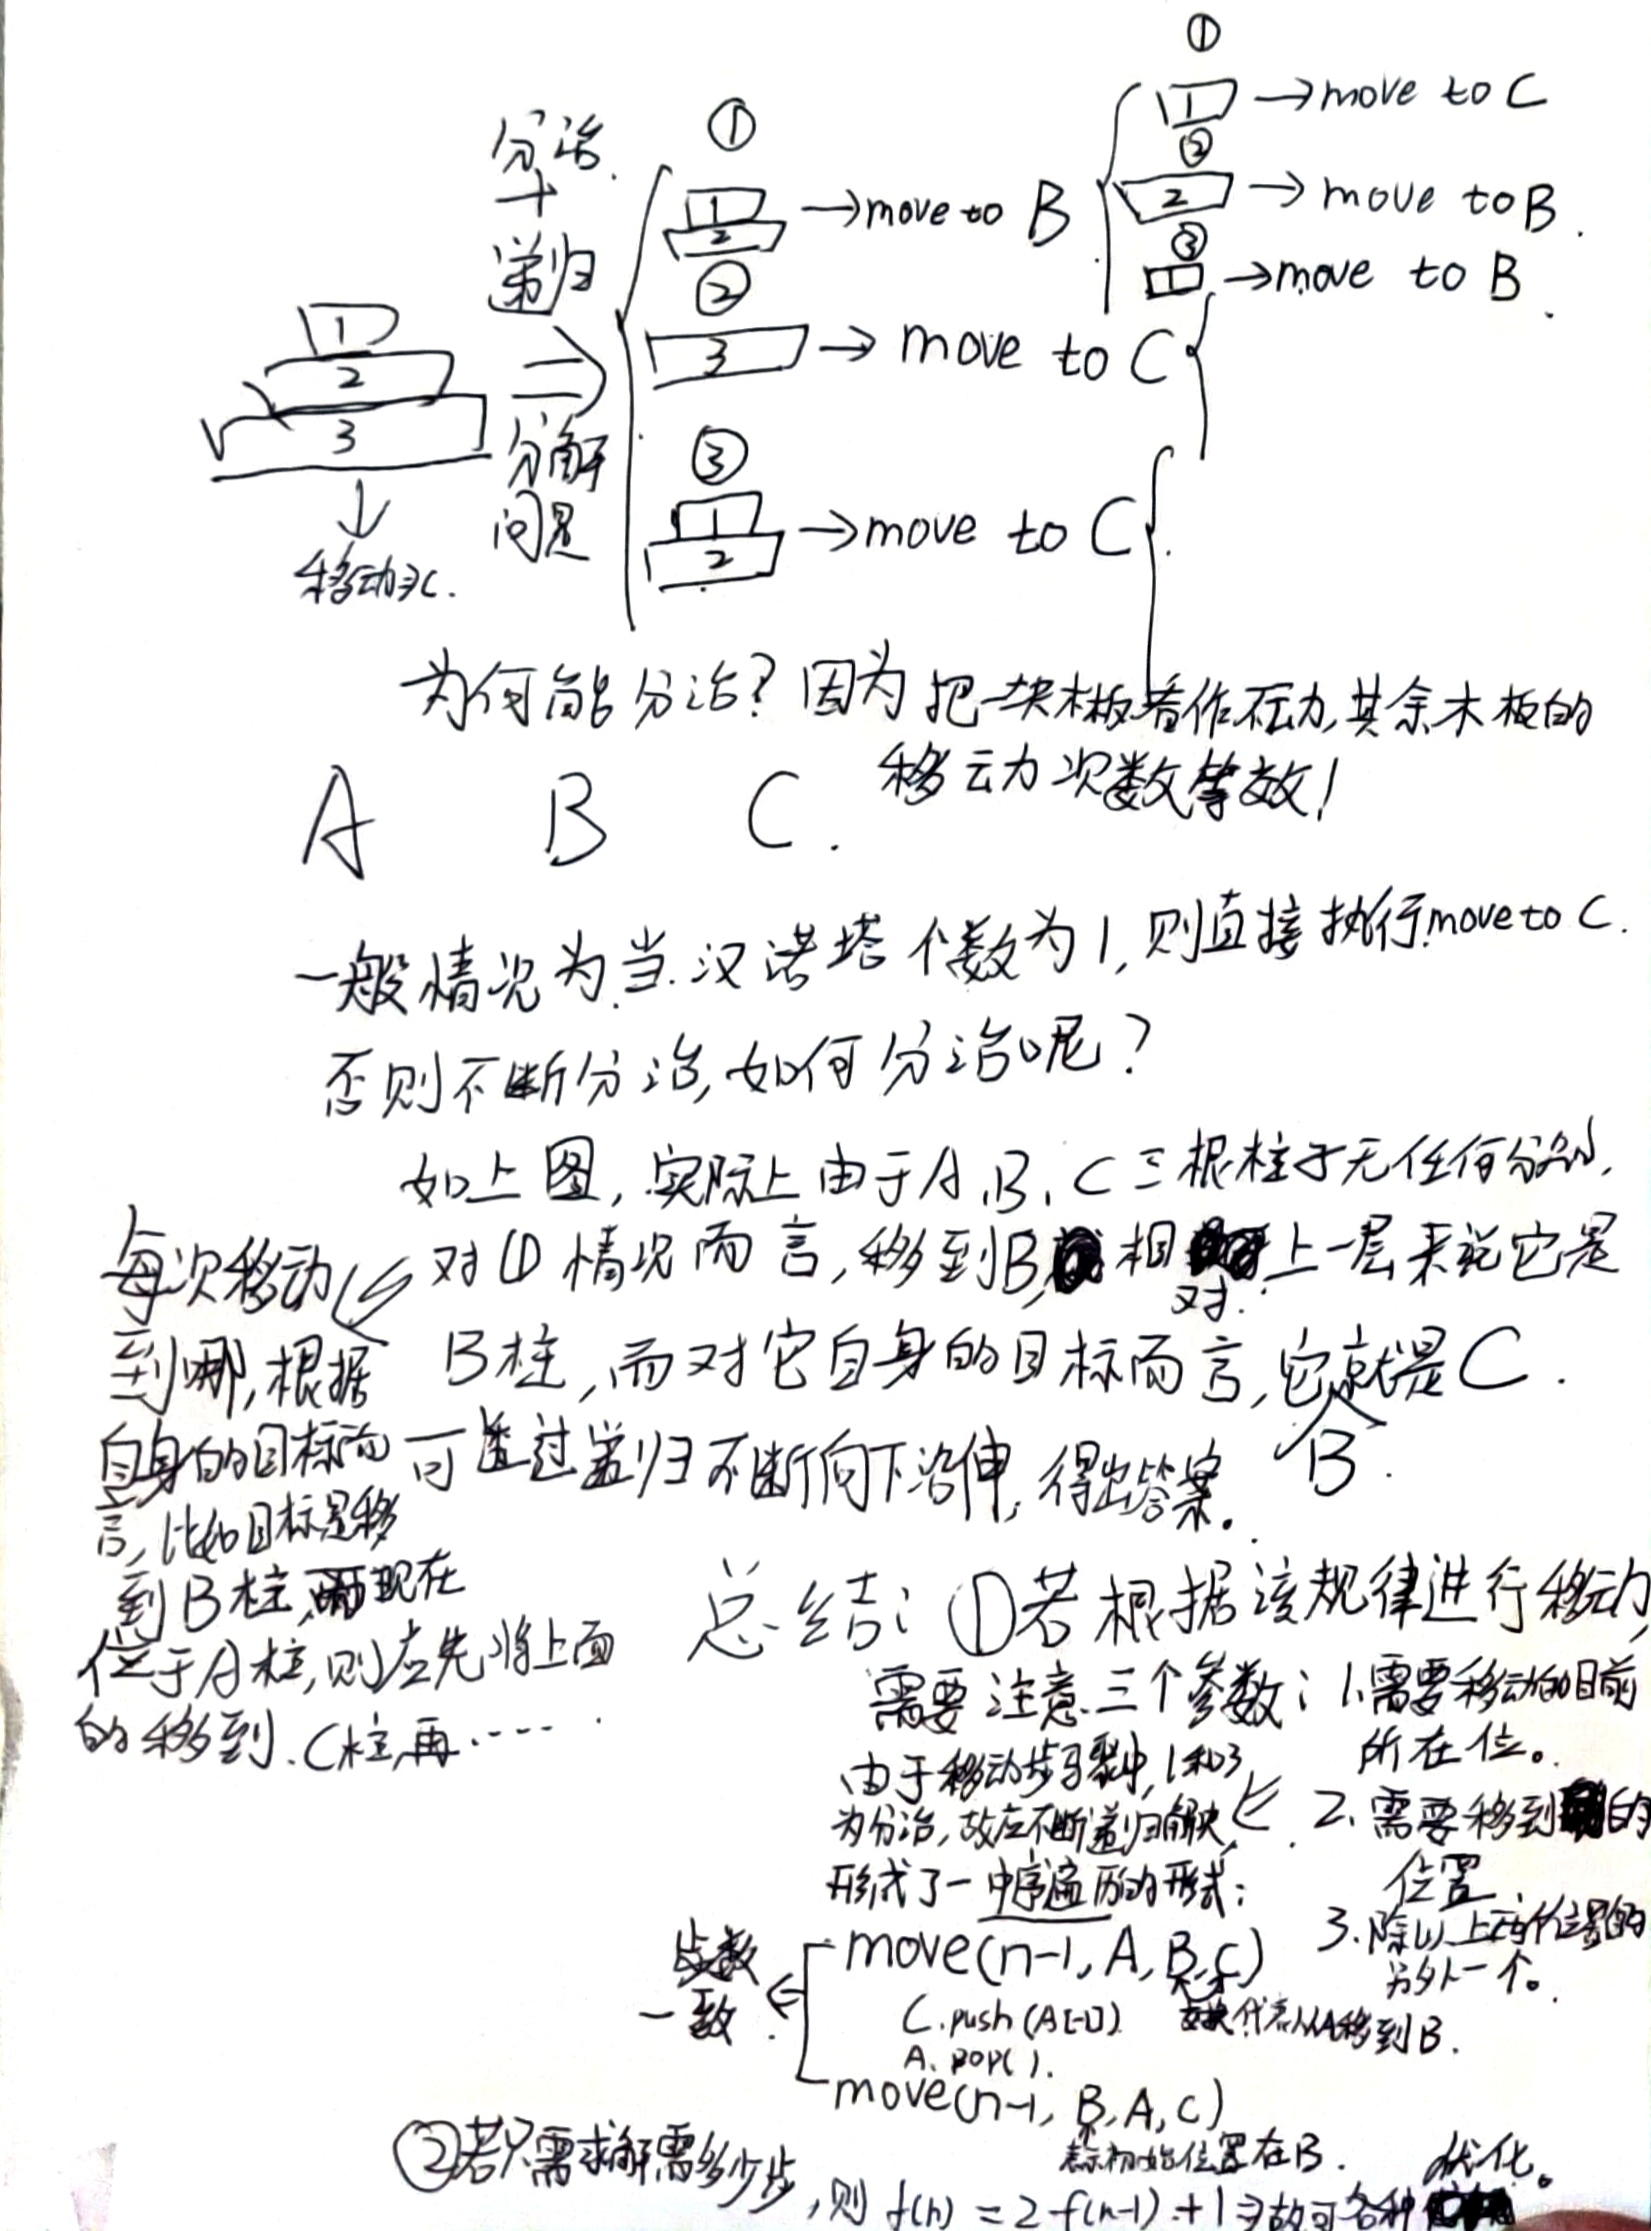 分治
+
递归
分解
问是
1
2
3
移动到C.
①
1
2
→move to B
②
3
→ move to C
③
1
2
→move to C
①
1
→move to C
②
2
→ move to B.
③
1
→move to B.
为何能分治?因为把一块木板看作不动,其余木板的
移动次数等效!
A B C.
一般情况为当汉诺塔个数为1,则直接执行move to C.
否则不断分治,如何分治呢?
如上图,实际上由于A、B、C三根柱子无任何分别,
对①情况而言,移到B,相对上一层来说它是
B柱,而对它自身的目标而言,它就是C.
B.
可通过递归不断向下沿伸,得出答案。
每次移动
到哪,根据
自身的目标而
言,比如目标是移
到B柱,而现在
位于A柱,则应先将上面
的移到C柱,再······
总结:①若根据该规律进行移动,
需要注意三个参数:1.需要移动的目前
所在位。
2.需要移到的
位置
3.除以上两个位置的
另外一个。
由于移动步骤中,1和3
为分治,故应不断递归解决,
形成了一中序遍历的形式:
步数
一致.
move(n-1, A, B, C)
C.push(A[-1])
代表从A移到B.
A.pop().
move(n-1, B, A, C)
表示初始位置在B.
②若只需求解需多少步,则 f(n) = 2f(n-1)+1⇒故可各种
优化。